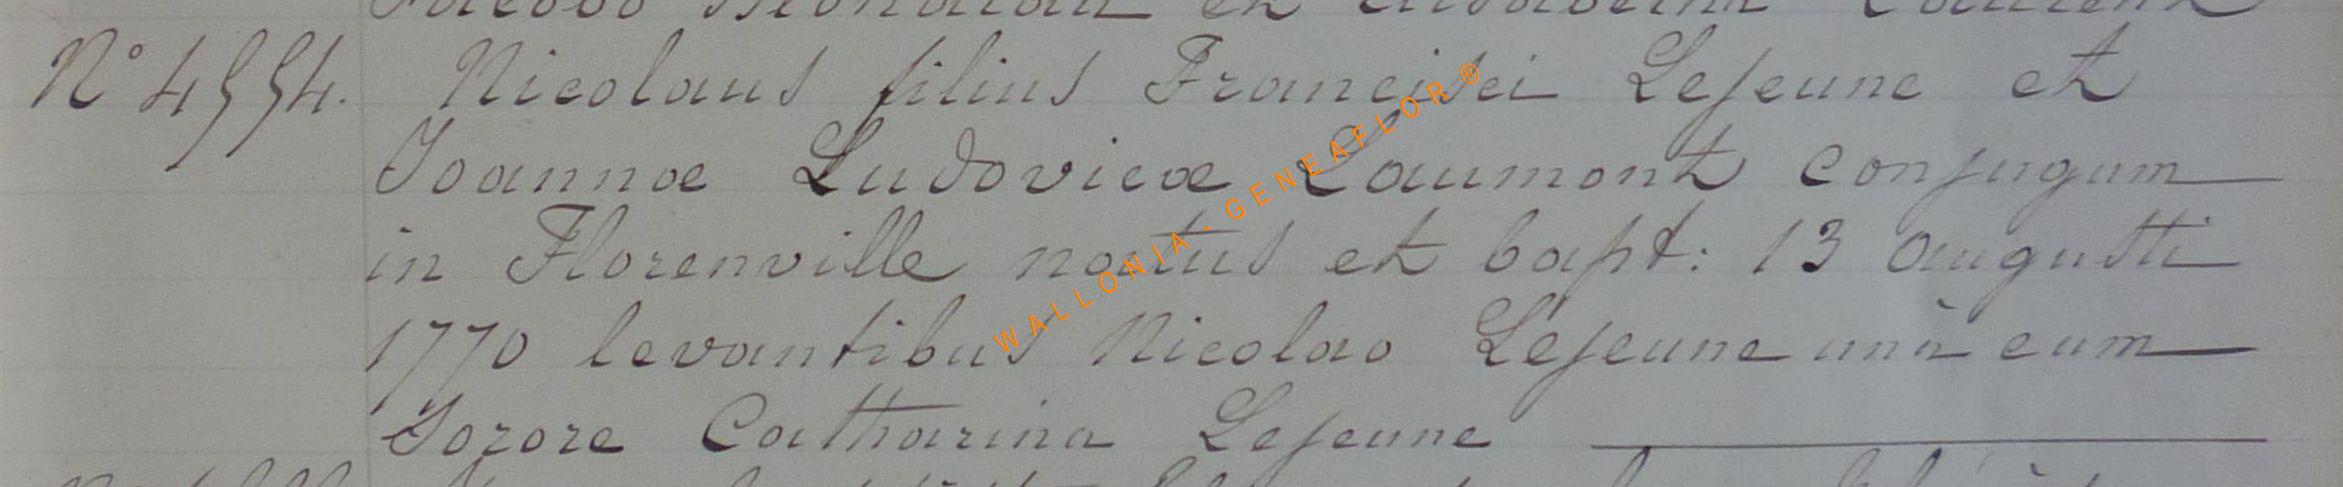 Nº 4554. Nicolaus filius Francisci Lejeune et
Joannæ Ludovicæ Laumont conjugum
in Florenville natus et bapt: 13 augusti
1770 levantibus Nicolao Lejeune unà cum
Sorore Catharina Lejeune
WALLONIA-GENEAFLOR®